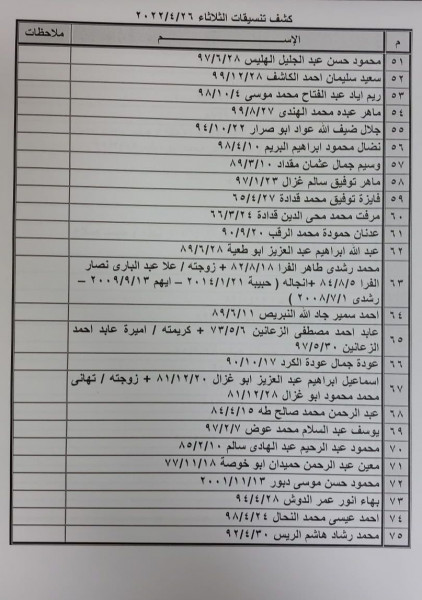 كشف تنسيقات الثلاثاء ٢٠٢٢/٤/٢٦
م الإســــم ملاحظات
٥١ محمود حسن عبد الجليل الهليس ٩٧/٦/٢٨
٥٢ سعيد سليمان احمد الكاشف ٩٩/١٢/٢٨
٥٣ ريم اياد عبد الفتاح محمد موسى ٩٨/١٠/٤
٥٤ ماهر عبده محمد الهندى ٩٩/٨/٢٧
٥٥ جلال ضيف الله عواد ابو صرار ٩٤/١٠/٢٢
٥٦ نضال محمود ابراهيم البريم ٩٨/٤/١٠
٥٧ وسيم جمال عثمان مقداد ٨٩/٣/١٠
٥٨ ماهر توفيق سالم غزال ٩٧/١/٢٣
٥٩ فايزة توفيق محمد قدادة ٦٥/٤/٢٧
٦٠ مرفت محمد محى الدين قدادة ٦٦/٣/٢٤
٦١ عدنان حمودة محمد الرقب ٩٠/٩/٢٠
٦٢ عبد الله ابراهيم عبد العزيز ابو طعية ٨٩/٦/٢٨
٦٣ محمد رشدى طاهر الفرا ٨٢/٨/١٨ + زوجته / علا عبد البارى نصار
الفرا ٨٤/٨/٥ +انجاله ( حبيبة ٢٠١٤/١/٢١ – ايهم ٢٠٠٩/٩/١٣ –
رشدى ٢٠٠٨/٧/١ )
٦٤ احمد سمير جاد الله النبريص ٨٩/٦/١١
٦٥ عابد احمد مصطفى الزعانين ٧٣/٥/٦ + كريمته / اميرة عابد احمد
الزعانين ٩٧/٥/٣٠
٦٦ عودة جمال عودة الكرد ٩٠/١٠/١٧
٦٧ اسماعيل ابراهيم عبد العزيز ابو غزال ٨١/١٢/٢٠ + زوجته / تهانى
محمد محمود ابو غزال ٨١/١٢/٢٨
٦٨ عبد الرحمن محمد صالح طه ٨٤/٤/١٥
٦٩ يوسف عبد السلام محمد عوض ٩٧/٢/٧
٧٠ محمود عبد الرحيم عبد الهادى سالم ٨٥/٢/١٠
٧١ معين عبد الرحمن حميدان ابو خوصة ٧٧/١١/١٨
٧٢ محمود حسن موسى دبور ٢٠٠١/١١/١٣
٧٣ بهاء انور عمر الدوش ٩٤/٤/٢٨
٧٤ احمد عيسى محمد النحال ٩٨/٤/٢٤
٧٥ محمد رشاد هاشم الريس ٩٢/٤/٣٠